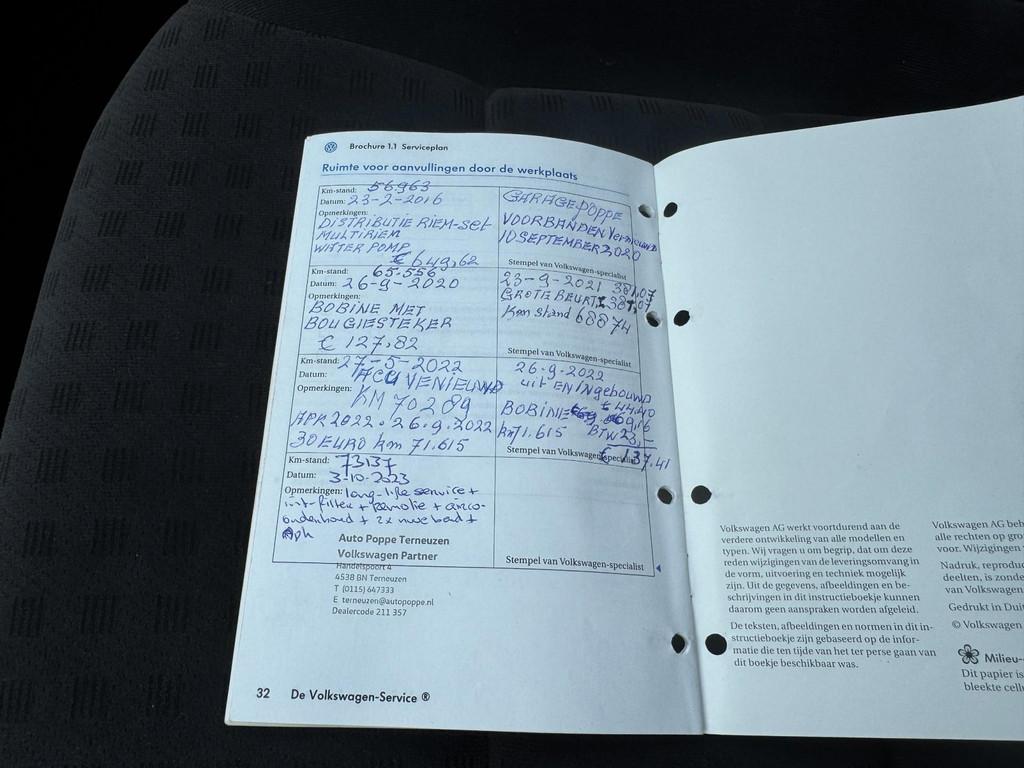 Brochure 1.1 Serviceplan
Ruimte voor aanvullingen door de werkplaats
Km-stand: 56.963
Datum: 23-2-2016
Opmerkingen:
DISTRIBUTIE RIEM-set
MULTIRIEM
WATER POMP
€ 649,62
GARAGE POPPE
VOORBANDEN Vernieuwd
10 SEPTEMBER 2020
Stempel van Volkswagen-specialist
Km-stand: 65.556
Datum: 26-9-2020
Opmerkingen:
BOBINE MET
BOUGIESTEKER
€ 127,82
23-9-2021 381,07
GROTE BEURT 381,07
Km stand 68874
Stempel van Volkswagen-specialist
Km-stand: 27-5-2022
Datum: ACCU VENIEUWD
Opmerkingen: KM 70289
APK 2022. 26.9.2022
30 EURO km 71.615
26.9.2022
uit EN INgebouwD
€ 44.40
BOBINE 69,16
km 71.615 BTW 23,-
€ 137.41
Stempel van Volkswagen-specialist
Km-stand: 73137
Datum: 3-10-2023
Opmerkingen: long-life service +
int-filter + remolie + airco-
onderhoud + 2x +
Apk
Auto Poppe Terneuzen
Volkswagen Partner
Handelspoort 4
4538 BN Terneuzen
T (0115) 647333
E terneuzen@autopoppe.nl
Dealercode 211 357
Stempel van Volkswagen-specialist
32 De Volkswagen-Service ®
Volkswagen AG werkt voortdurend aan de
verdere ontwikkeling van alle modellen en
typen. Wij vragen u om begrip, dat om deze
reden wijzigingen van de leveringsomvang in
de vorm, uitvoering en techniek mogelijk
zijn. Uit de gegevens, afbeeldingen en be-
schrijvingen in dit instructieboekje kunnen
daarom geen aanspraken worden afgeleid.
De teksten, afbeeldingen en normen in dit in-
structieboekje zijn gebaseerd op de infor-
matie die ten tijde van het ter perse gaan van
dit boekje beschikbaar was.
Volkswagen AG beh
alle rechten op gro
voor. Wijzigingen
Nadruk, reproduc
deelten, is zonde
van Volkswagen
Gedrukt in Dui
© Volkswagen
Milieu-
Dit papier is
bleekte cellu